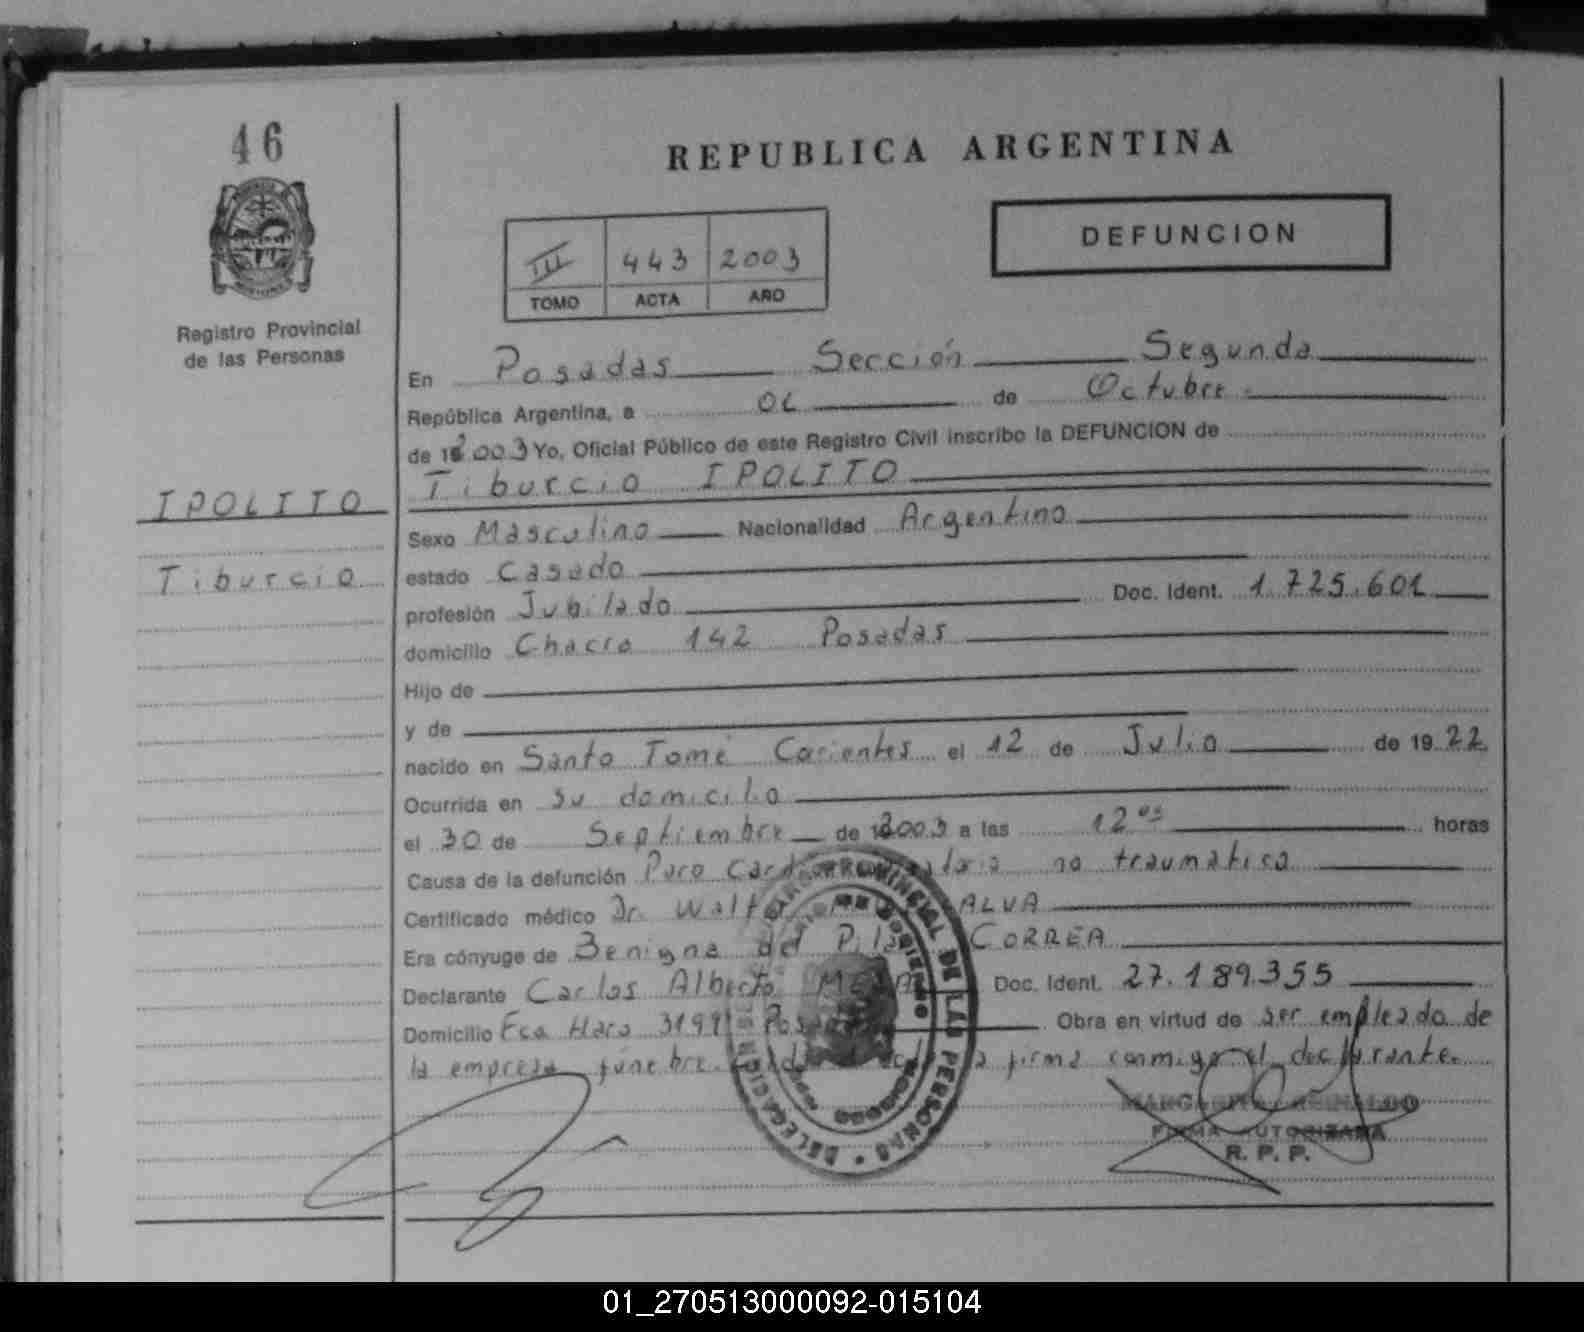 46
REPUBLICA ARGENTINA
DEFUNCION
III 443 2003
TOMO ACTA AÑO
Registro Provincial
de las Personas
En Posadas Sección Segunda
República Argentina, a 01 de Octubre
de 2003 Yo, Oficial Público de este Registro Civil inscribo la DEFUNCION de
Tiburcio IPOLITO
IPOLITO
Tiburcio
Sexo Masculino Nacionalidad Argentino
estado Casado
profesión Jubilado Doc. Ident. 1.725.601
domicilio Chacra 142 Posadas
Hijo de
y de
nacido en Santo Tomé Corientes el 12 de Julio de 1922
Ocurrida en su domicilio
el 30 de Septiembre de 2003 a las 12 horas
Causa de la defunción Paro no traumatico
Certificado médico Dr. ALVA
Era cónyuge de Benigna del CORREA
Declarante Carlos Alberto Doc. Ident. 27.189.355
Domicilio Fco Haro Obra en virtud de ser empleado de
la empresa fúnebre. firma conmigo el declarante.
DELEGACION
PROVINCIAL DE LAS PERSONAS
GOBIERNO
POSADAS
FIRMA AUTORIZADA
R. P. P.
01_270513000092-015104